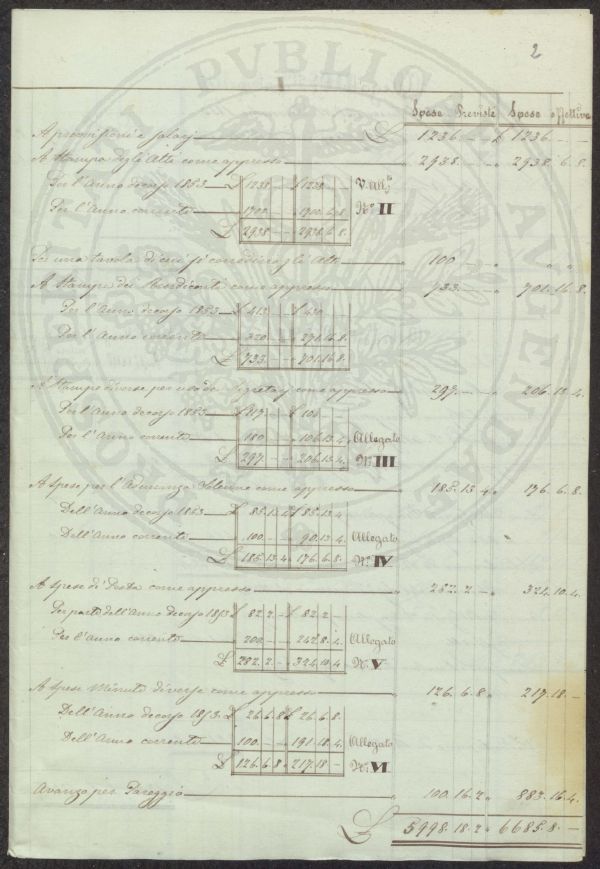 2
Spese Previste Spese effettive
A provisioni e £ 1236. — — £ 1236. — —
A Stampa degli Atti come appresso — 2938. — — 2938. 6. 8.
Per l'Anno decorso 1853 — £ 1238. — — £ 1238. — — V. All.to
Per l'Anno corrente — 1700. — — 1700. 6. 8. N.º II
£ 2938. — — 2938. 6. 8.
Per una tavola di cui si corredino gli Atti — 100. — — " " "
A Stampa dei Rendiconti come appresso — 733. — — 701. 16. 8.
Per l'Anno decorso 1853 — £ 413. — — £ 430. — —
Per l'Anno corrente — 320. — — 271. 16. 8.
£ 733. — — 701. 16. 8.
A Stampe diverse per uso di come appresso — 297. — — 206. 13. 4.
Per l'Anno decorso 1853 — £ 117. — — £ 100. — —
Per l'Anno corrente — 180. — — 106. 13. 4. Allegato
£ 297. — — 206. 13. 4. N.º III
A spese per l'Adunanza Solenne come appresso — 185. 13. 4. 176. 6. 8.
Dell'Anno decorso 1853 — £ 85. 13. 4. £ 85. 13. 4.
Dell'Anno corrente — 100. — — 90. 13. 4. Allegato
£ 185. 13. 4. 176. 6. 8. N.º IV
A spese di Posta come appresso — 282. 2. — 324. 10. 4.
Per parte dell'Anno decorso 1853 £ 82. 2. — £ 82. 2. —
Per l'Anno corrente — 200. — — 242. 8. 4. Allegato
£ 282. 2. — 324. 10. 4. N. V
A spese Minute diverse come appresso — 126. 6. 8. 217. 18. —
Dell'Anno decorso 1853. £ 26. 6. 8. £ 26. 6. 8.
Dell'Anno corrente — 100. — — 191. 18. 4. Allegato
£ 126. 6. 8. 217. 18. — N. VI
Avanzo per Pareggio — 100. 16. 2. 883. 16. 4.
£ 5998. 18. 2. 6685. 8. —